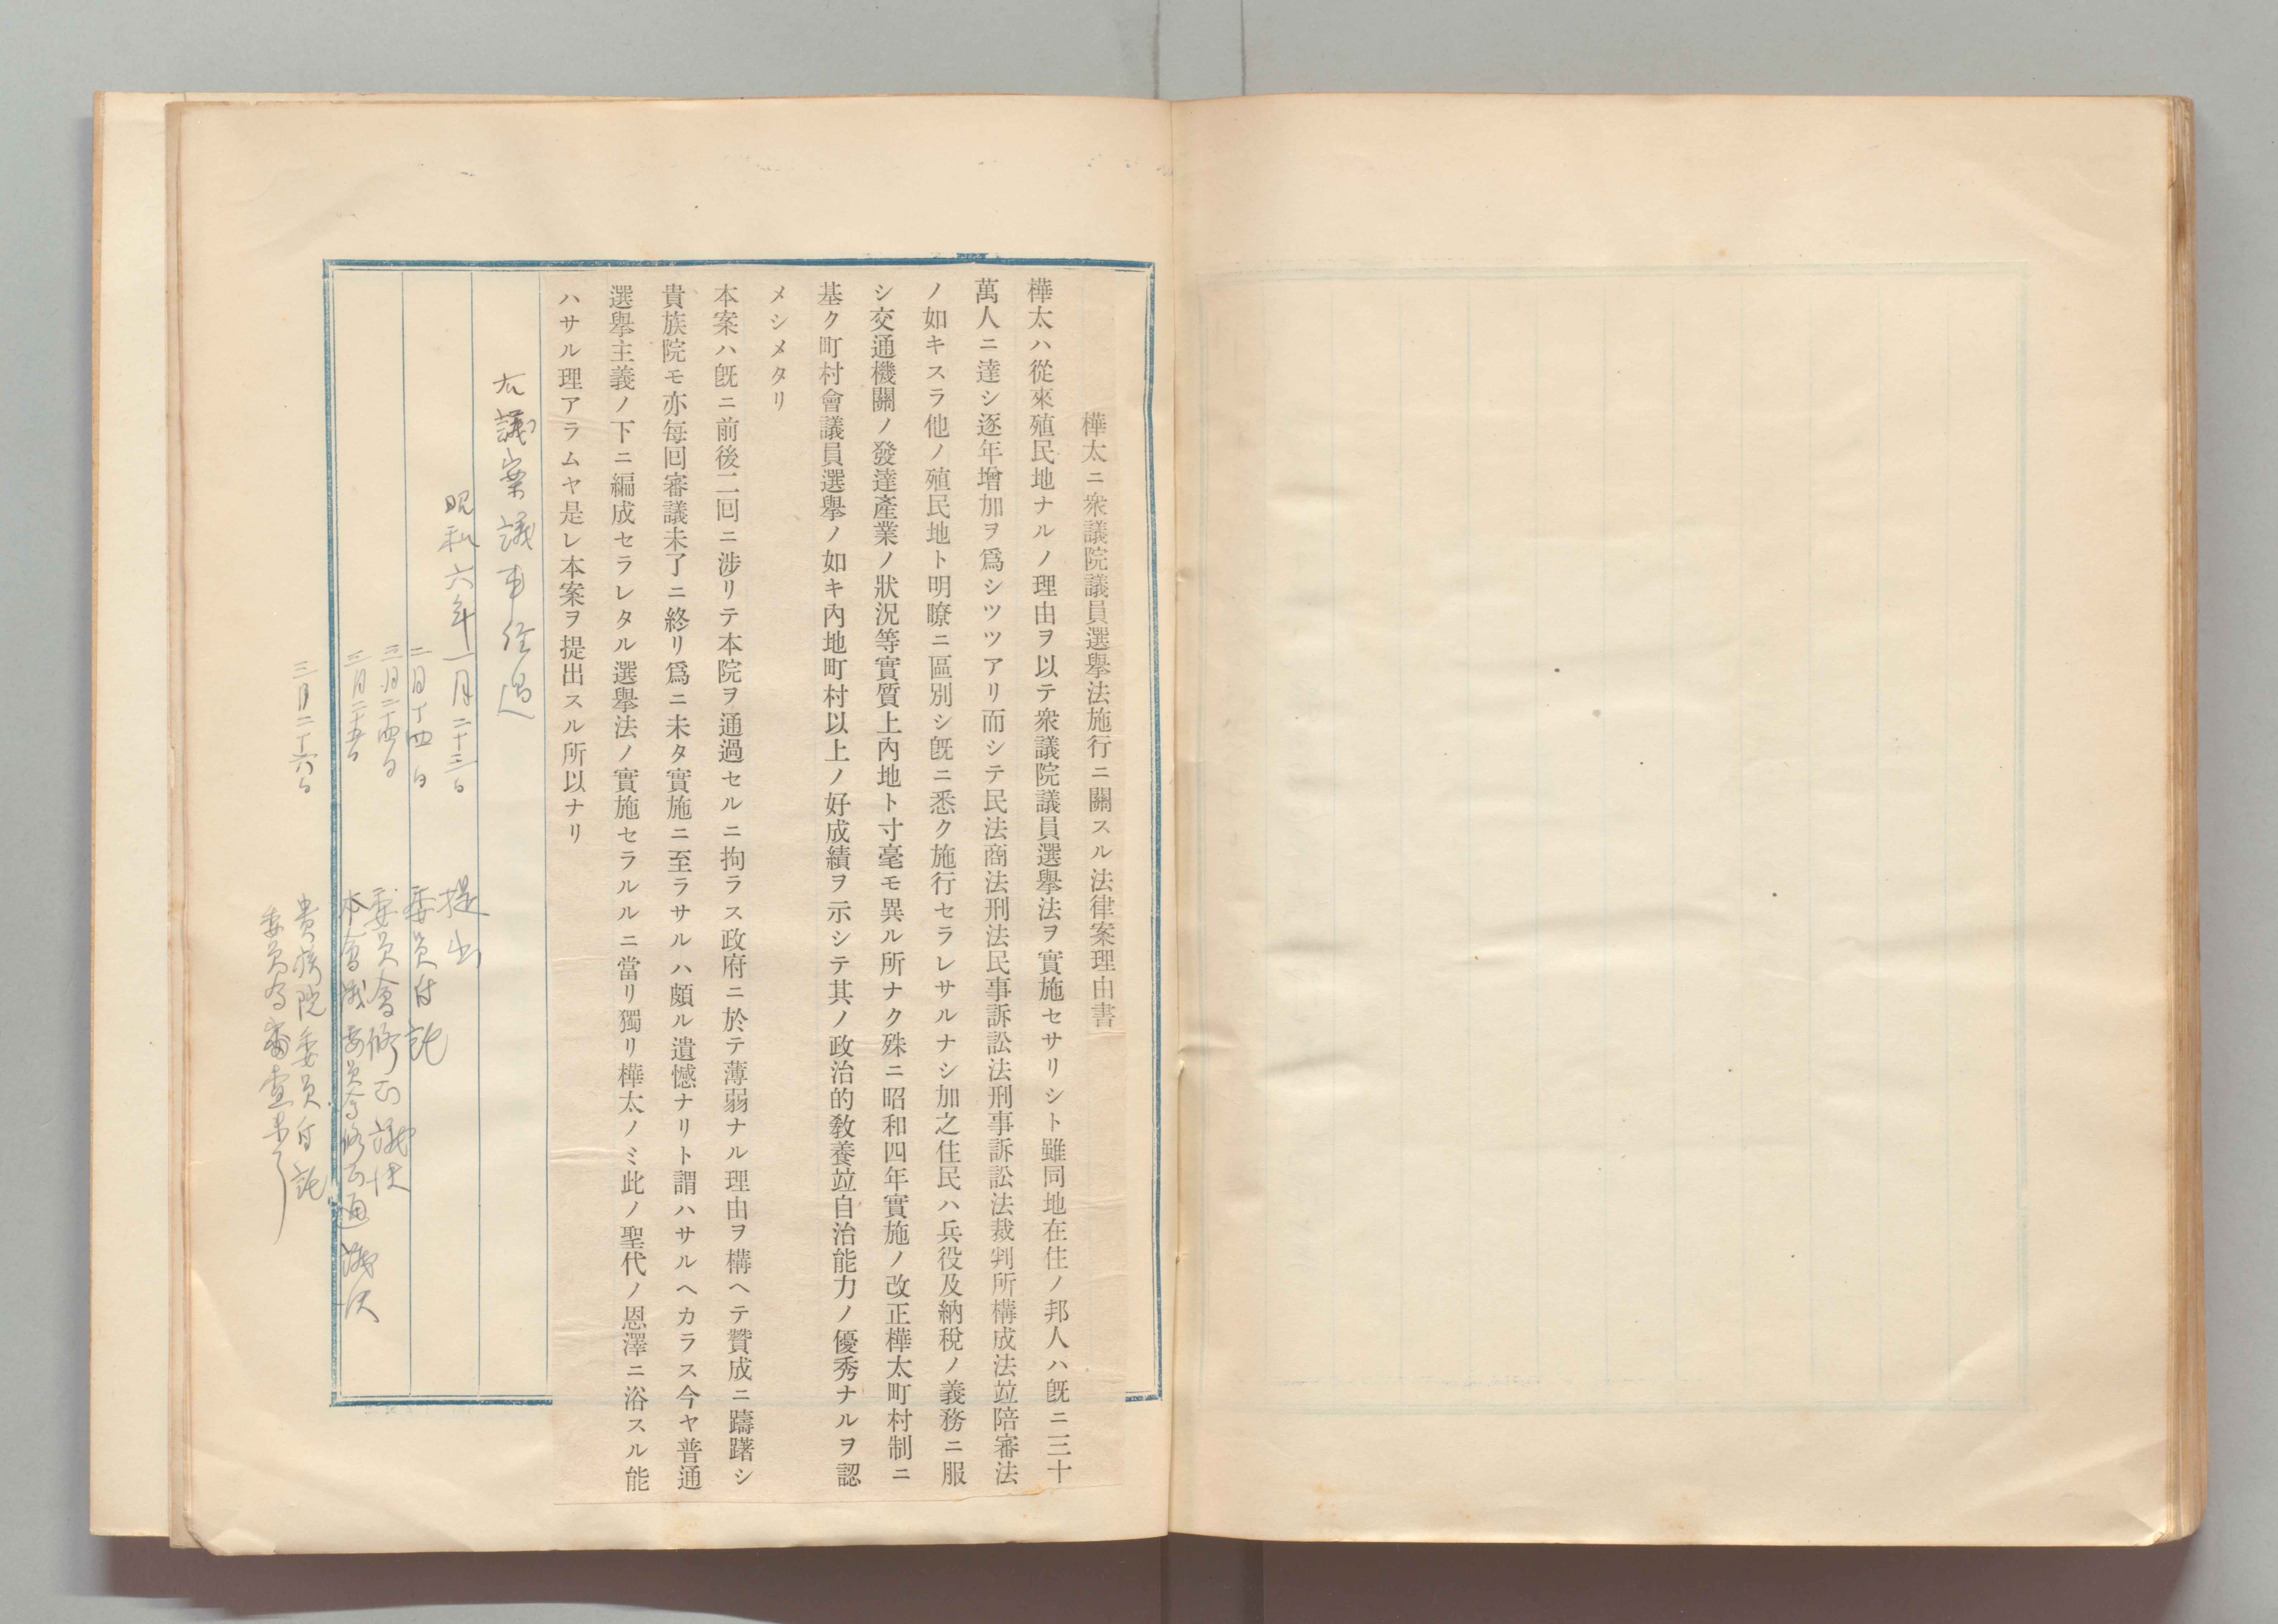 樺太ニ衆議院議員選擧法施行ニ關スル法律案理由書
樺太ハ從來殖民地ナルノ理由ヲ以テ衆議院議員選擧法ヲ實施セサリシト雖同地在住ノ邦人ハ旣ニ三十
萬人ニ達シ逐年增加ヲ爲シツツアリ而シテ民法商法刑法民事訴訟法刑事訴訟法裁判所構成法竝陪審法
ノ如キスラ他ノ殖民地ト明瞭ニ區別シ旣ニ悉ク施行セラレサルナシ加之住民ハ兵役及納稅ノ義務ニ服
シ交通機關ノ發達產業ノ狀況等實質上內地ト寸毫モ異ル所ナク殊ニ昭和四年實施ノ改正樺太町村制ニ
基ク町村會議員選擧ノ如キ內地町村以上ノ好成績ヲ示シテ其ノ政治的敎養竝自治能力ノ優秀ナルヲ認
メシメタリ
本案ハ旣ニ前後二回ニ涉リテ本院ヲ通過セルニ拘ラス政府ニ於テ薄弱ナル理由ヲ構ヘテ贊成ニ躊躇シ
貴族院モ亦每回審議未了ニ終リ爲ニ未タ實施ニ至ラサルハ頗ル遺憾ナリト謂ハサルヘカラス今ヤ普通
選擧主義ノ下ニ編成セラレタル選擧法ノ實施セラルルニ當リ獨リ樺太ノミ此ノ聖代ノ恩澤ニ浴スル能
ハサル理アラムヤ是レ本案ヲ提出スル所以ナリ
右議案議事経過
昭和六年一月二十三日 提出
二月十四日 委員付託
三月二十四日 委員會修正議決
三月二十五日 本會議委員会修正通議決
三月二十六日 貴族院委員付託
委員会審査未了